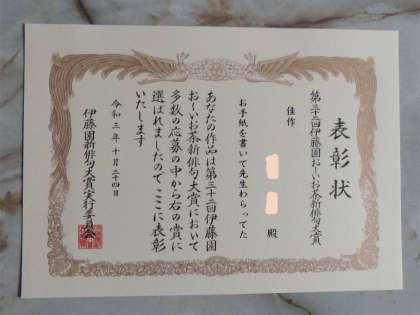 表彰状
第三十二回伊藤園お〜いお茶新俳句大賞
佳作
殿
お手紙を書いて先生わらってた
あなたの作品は第三十二回伊藤園
お〜いお茶新俳句大賞において
多数の応募の中から右の賞に
選ばれましたのでここに表彰
いたします
令和三年十月二十四日
伊藤園新俳句大賞実行委員会